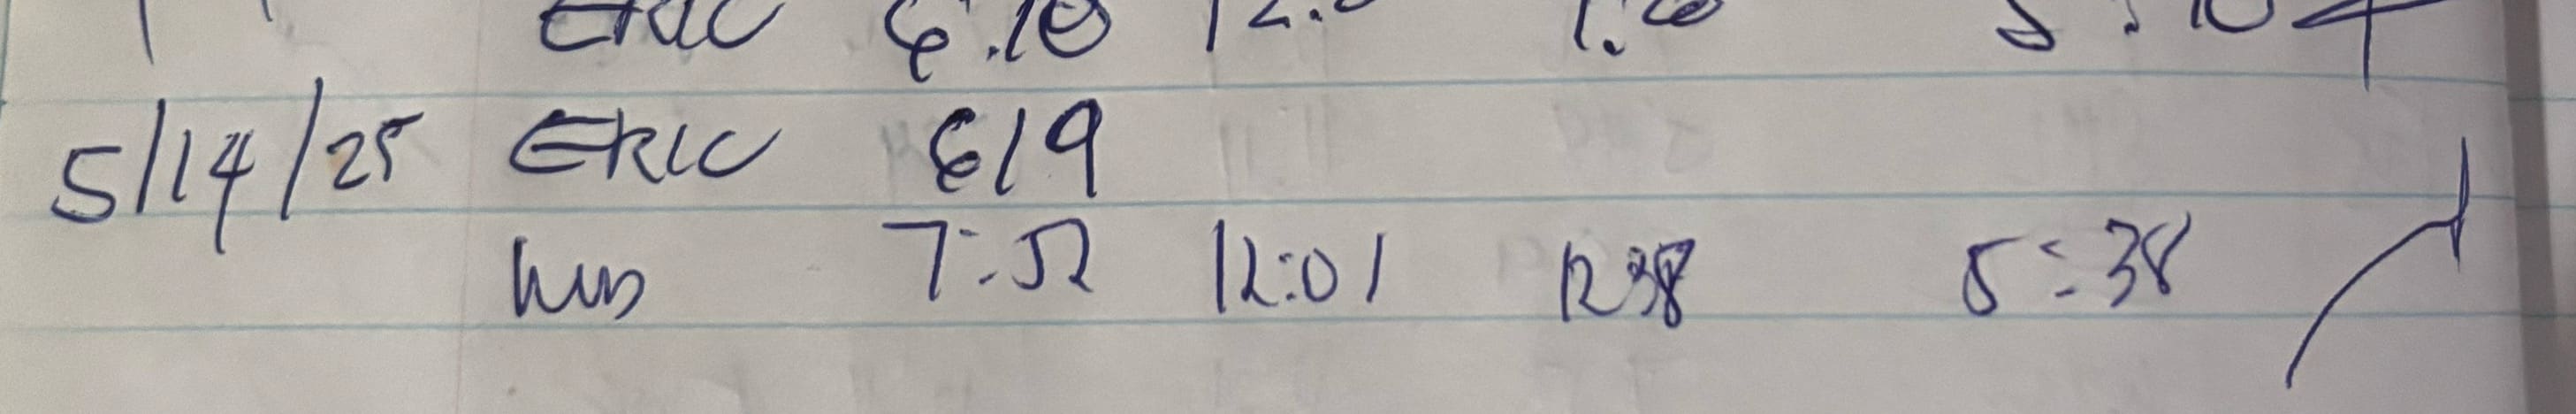 ERIC 6:10
5/14/25 ERIC 619
7:52 12:01 1238 5:38